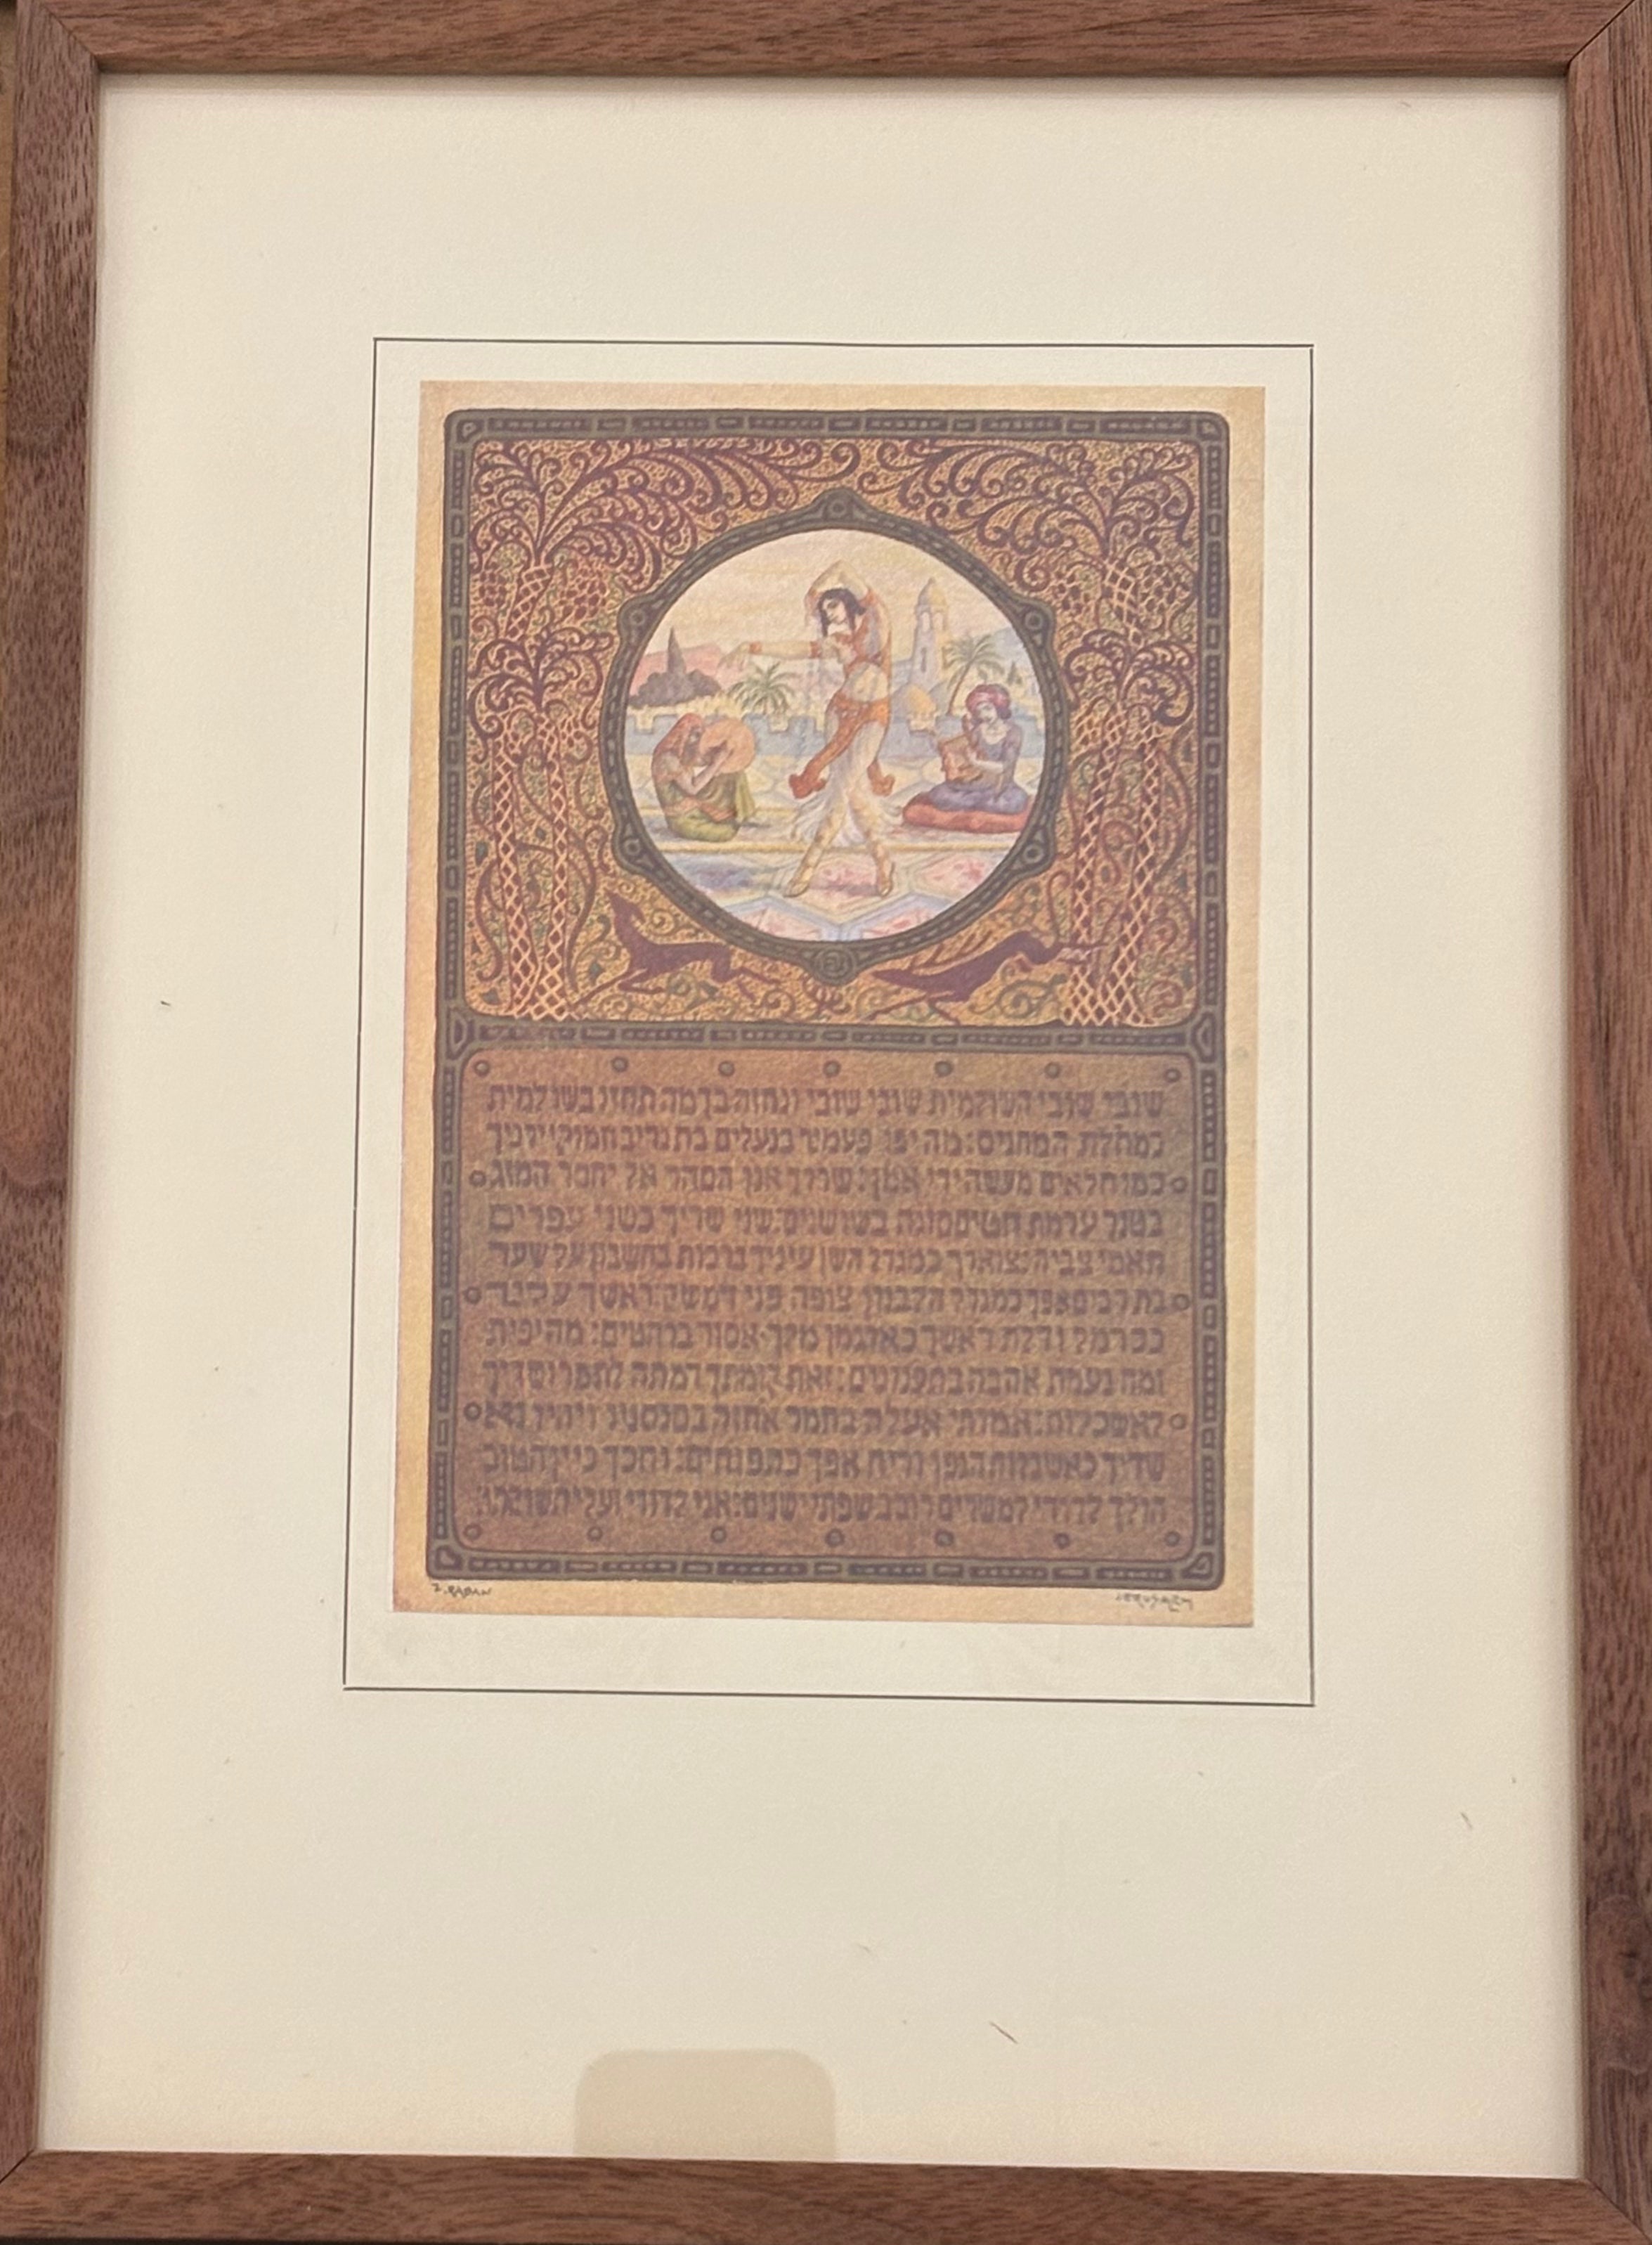 שובי שובי השולמית שובי שובי ונחזה בך מה תחזו בשולמית
כמחלת המחנים: מה יפו פעמיך בנעלים בת נדיב חמוקי ירכיך
כמו חלאים מעשה ידי אמן: שררך אגן הסהר אל יחסר המזג
בטנך ערמת חטים סוגה בשושנים: שני שדיך כשני עפרים
תאמי צביה: צוארך כמגדל השן עיניך ברכות בחשבון על שער
בת רבים אפך כמגדל הלבנון צופה פני דמשק: ראשך עליך
ככרמל ודלת ראשך כארגמן מלך אסור ברהטים: מה יפית
ומה נעמת אהבה בתענוגים: זאת קומתך דמתה לתמר ושדיך
לאשכלות: אמרתי אעלה בתמר אחזה בסנסניו ויהיו נא
שדיך כאשכלות הגפן וריח אפך כתפוחים: וחכך כיין הטוב
הולך לדודי למשרים דובב שפתי ישנים: אני לדודי ועלי תשוקתו:
Z. RABAN JERUSALEM